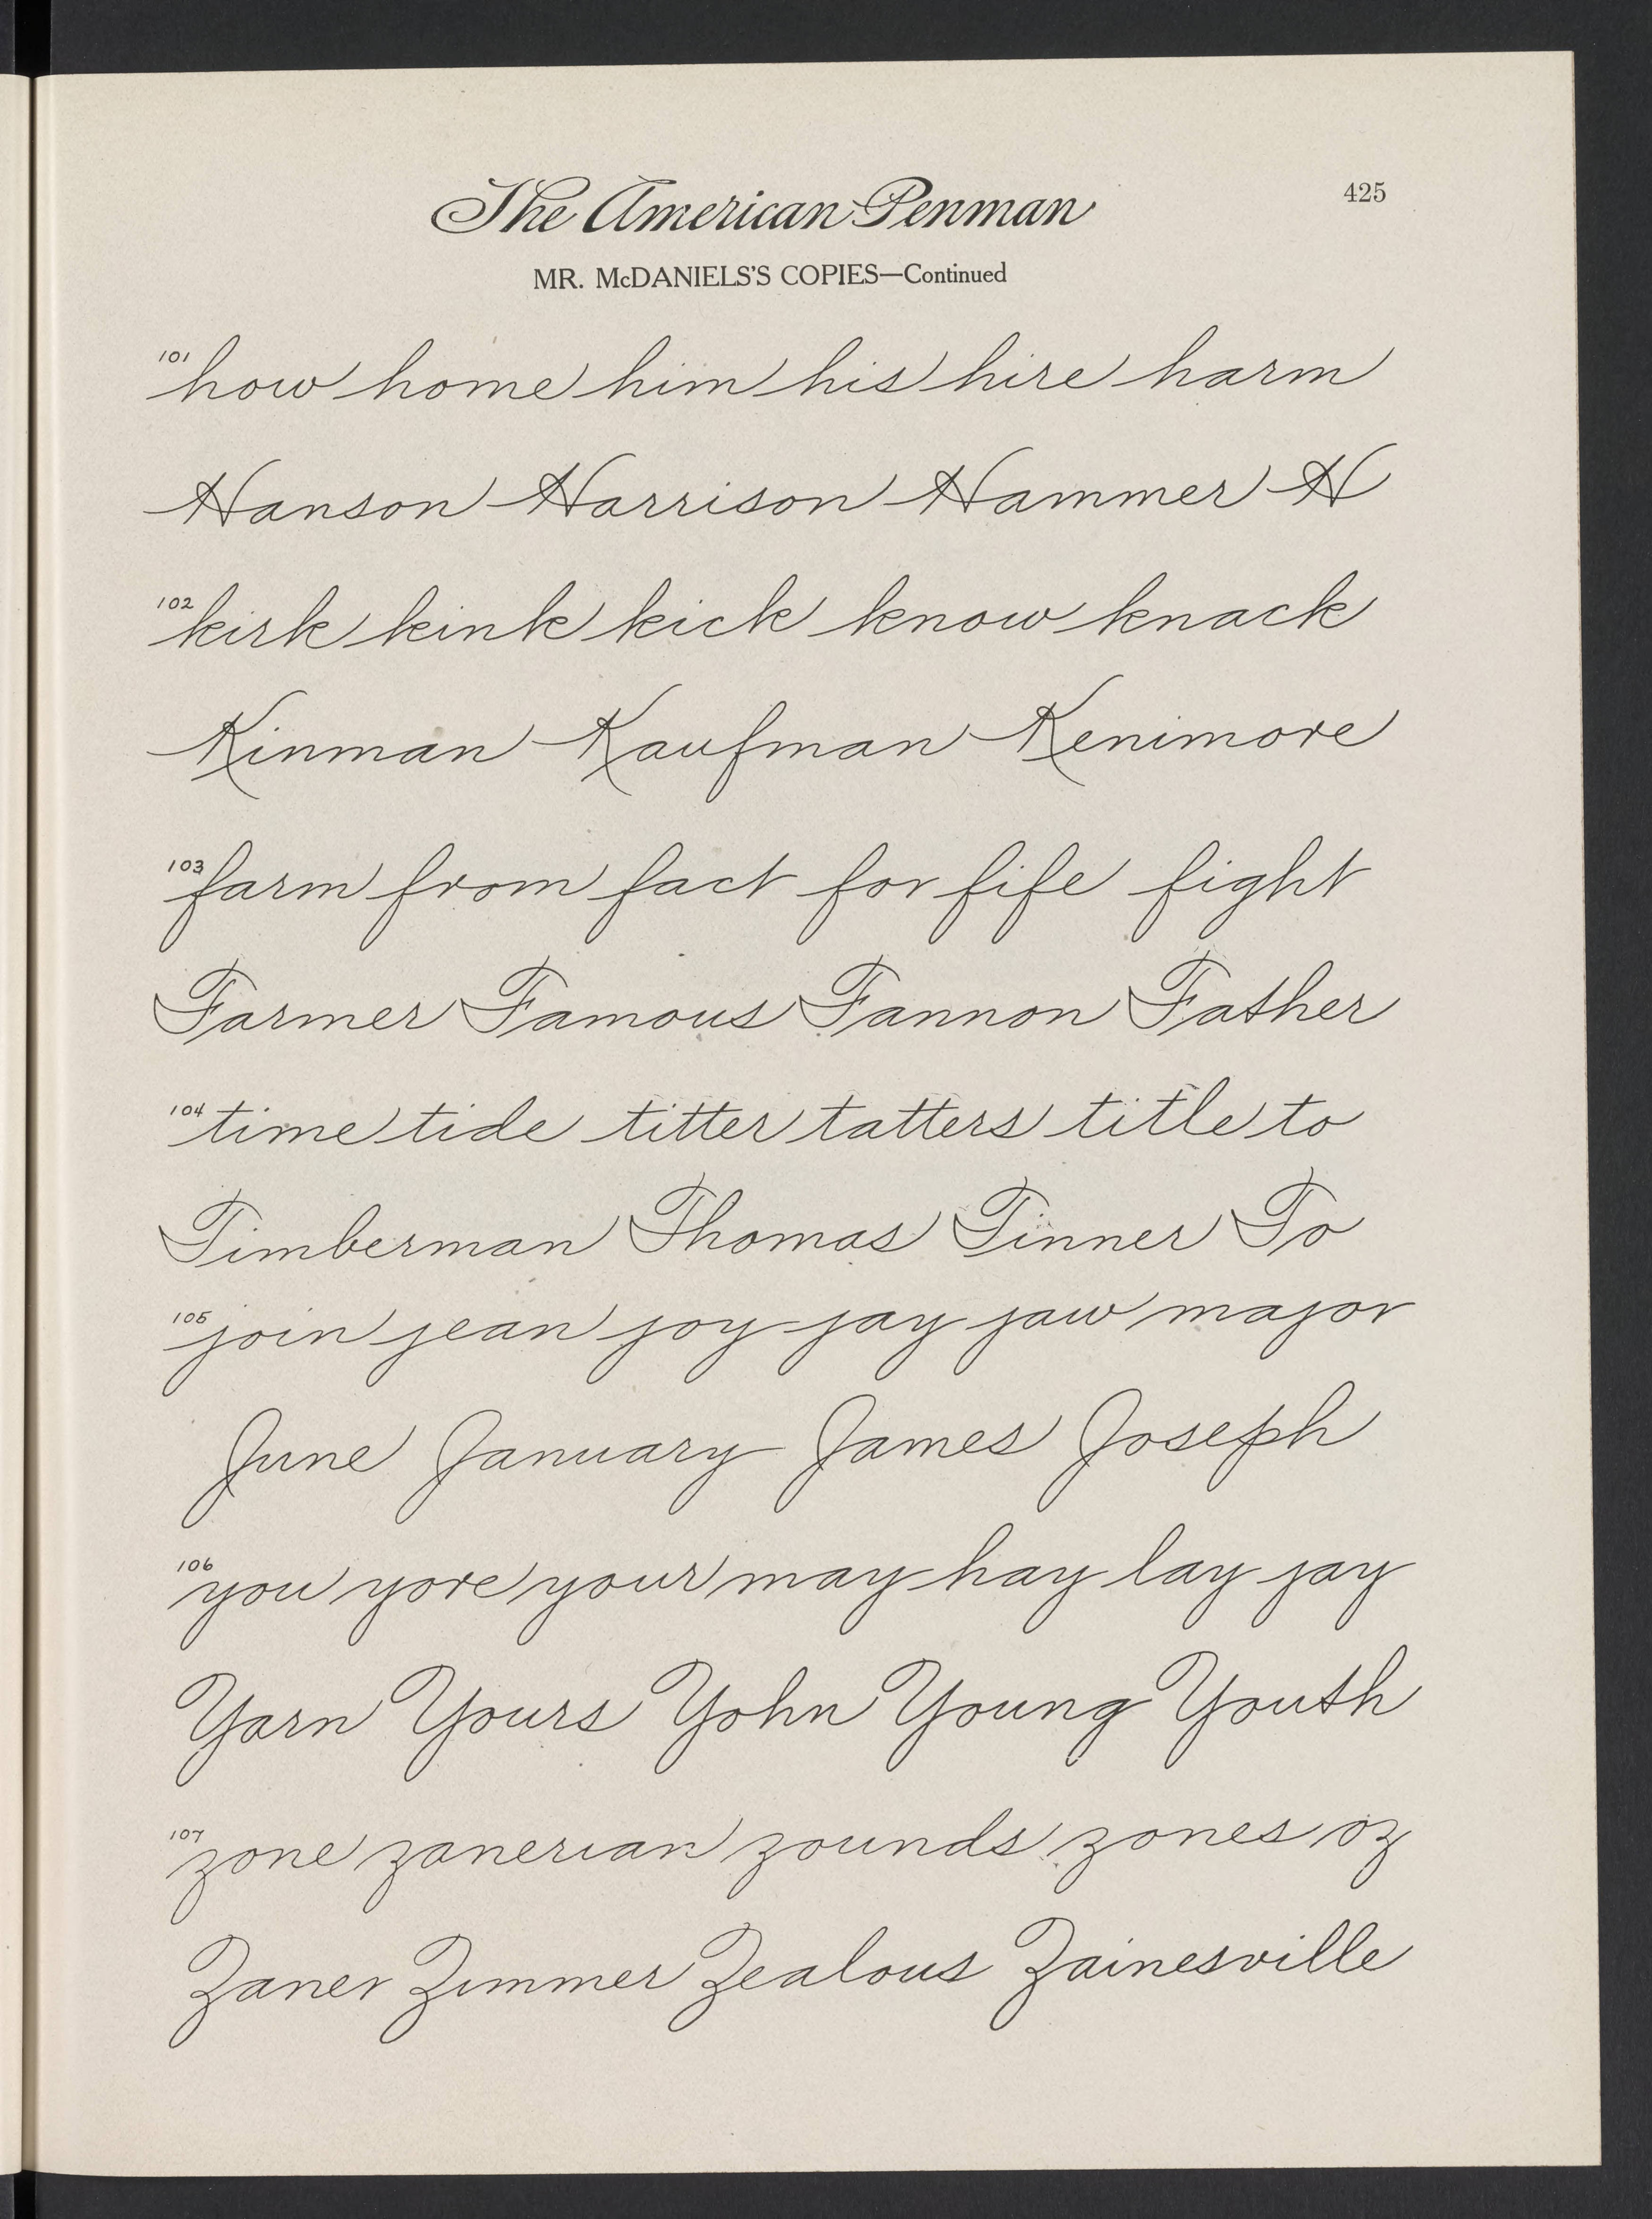 The American Penman
425
MR. McDANIELS'S COPIES—Continued
101 how home him his hire harm
Hanson Harrison Hammer H
102 kirk kink kick know knack
Kinman Kaufman Kenimore
103 farm from fact for fife fight
Farmer Famous Fannon Father
104 time tide titter tatters title to
Timberman Thomas Tinner To
105 join jean joy jay jaw major
June January James Joseph
106 you yore your may hay lay jay
Yarn Yours Yohn Young Youth
107 zone zanerian zounds zones oz
Zaner Zimmer Zealous Zainesville